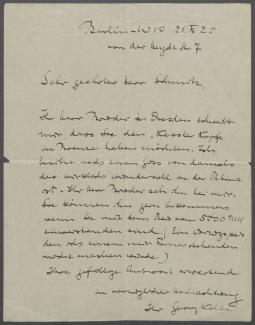 Berlin-W 10 21 XI 20
von der Heydt Str. 7
Sehr geehrter Herr Schmitz,
Ihr Herr Bruder in Dresden schreibt
mir dass Sie den „Kessler Kopf“
in Bronze haben möchten. Ich
besitze noch einen Guss von damals
der wirklich wundervoll in der Patina
ist. Ihr Herr Bruder sah ihn bei mir.
Sie können ihn gern bekommen
wenn Sie mit dem Preis von 5000 Mk
einverstanden sind. (Ein Vorzugspreis
den ich einem mir Fernerstehenden
nicht machen würde)
Ihre gefällige Antwort erwartend
in vorzüglicher Hochachtung
Ihr Georg Kolbe